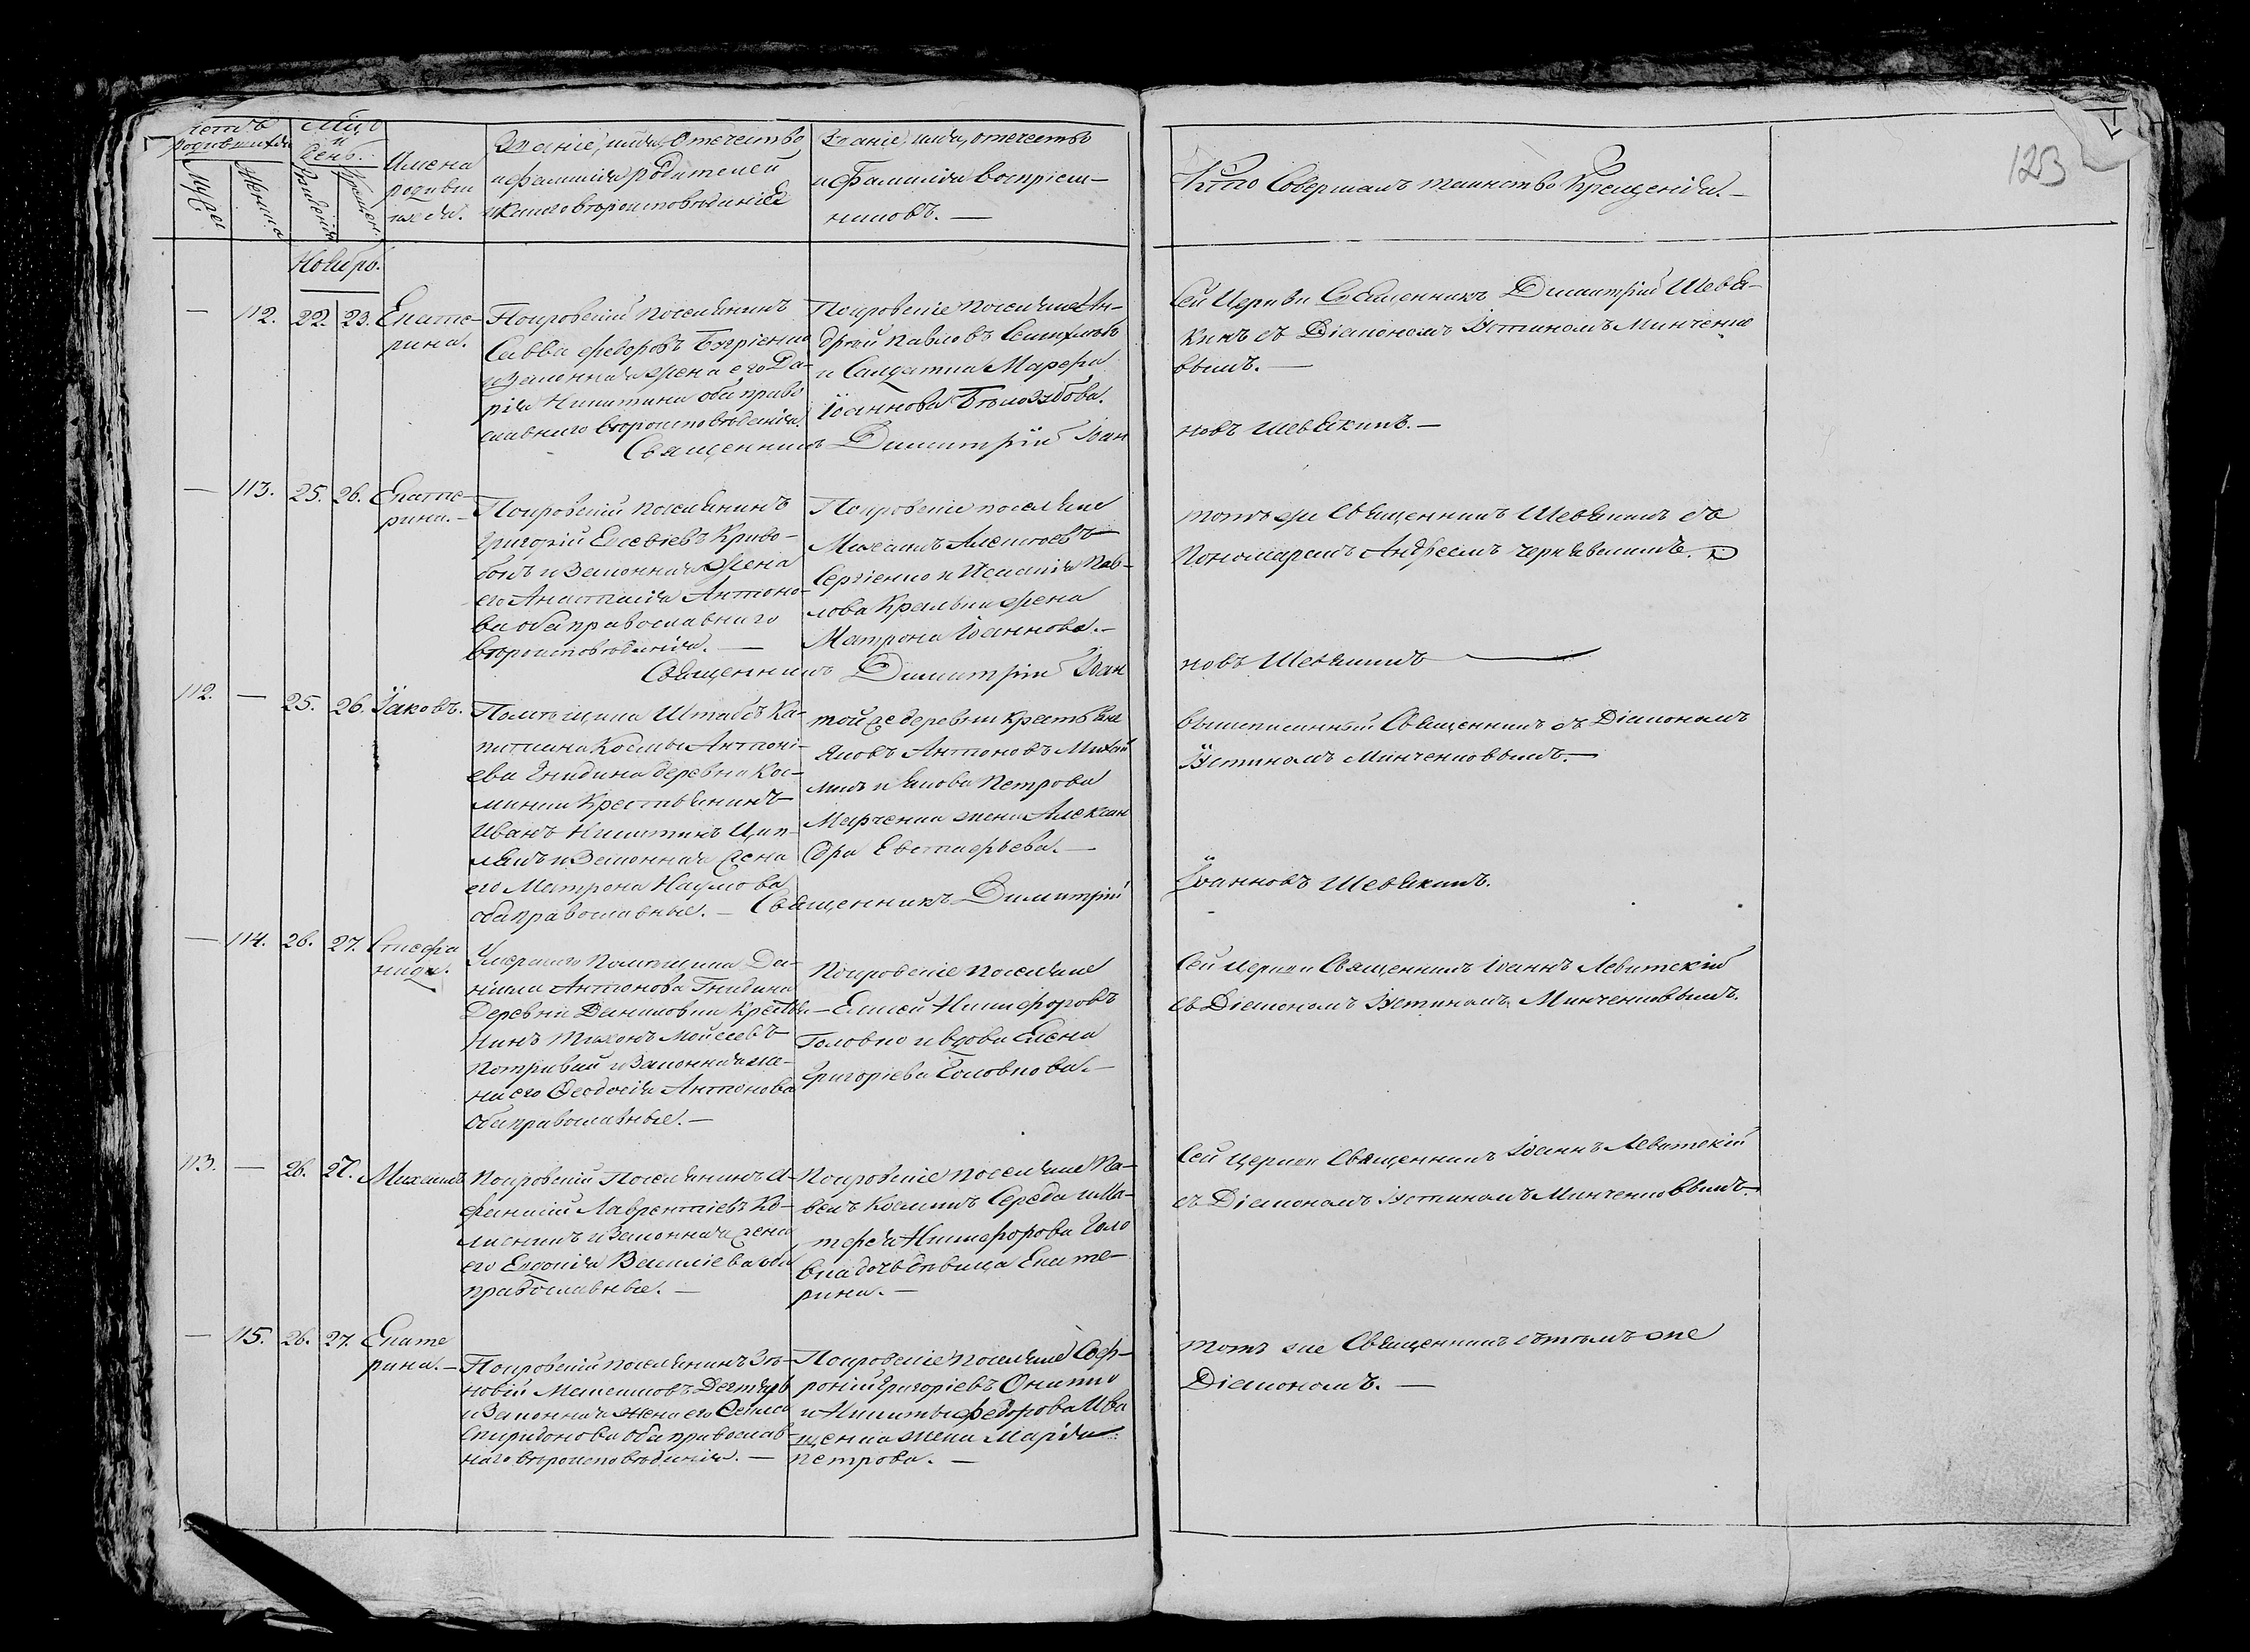 Счетъ родившихся
Муж.
Женска
Мѣц.
и
день.
Рожденія
Крещен.
Имена
родивш
ихся.
Званіе, имя, Отечество,
и фамилія родителей
и какого вѣроисповѣданія
Званіе, имя, отечество
и фамилія воспріем-
никовъ. —
Кто Совершалъ таинство Крещенія. —
123
Ноябрь.
— 112. 22. 23. Екате-
рина.
Покровскій поселянинъ
Савва Федоровъ
и Законная жена его Да-
рія Никитина оба право
славнаго вѣроисповѣданія.
Покровскіе поселяне Ан-
дрей Павловъ
и Салдатка Марфа
Іоаннова Бѣлозубова.
Сей Церкви Священникъ Димитрій Шевя-
кинъ съ Діакономъ Іустиномъ Минченко
вымъ. —
Священникъ Димитрій Іоан
новъ Шевякинъ. —
— 113. 25. 26. Екате-
рина. —
Покровскій поселянинъ
Григорій Евсевіевъ Криво-
бокъ и Законная жена
его Анастасія Антоно-
ва оба православнаго
вѣроисповѣданія. —
Покровскіе поселяне
Михаилъ Алексѣевъ
Сергіенко и Исакія Пав-
лова жена
Матрона Іоаннова. —
тотъ же Священникъ Шевякинъ съ
Пономаремъ Андреемъ Чернявскимъ.
Священникъ Димитрій Іоан
новъ Шевякинъ —
112. — 25. 26. Іаковъ.
Помѣщика Штабсъ Ка-
питана Космы Антоні-
ева Гнидина деревни Кос-
минки Крестьянинъ
Иванъ Никитинъ Цып-
лякъ и Законная жена
его Матрона Наумова
оба православные. —
той же деревни Крестьяне
Яковъ Антоновъ
и Якова Петрова
Марченка жена Алексан
дра Евстафьева. —
вышеписанный Священникъ съ Діакономъ
Іустиномъ Минченковымъ. —
Священникъ Димитрій
Іоанновъ Шевякинъ.
— 114. 26. 27. Стефа
нида.
Умершаго Помѣщика Да-
ніила Антонова Гнидина
Деревни Даниловки Крестья-
нинъ Тихонъ Моисеевъ
и Законная же-
на его Ѳеодосія Антонова
Оба православные. —
Покровскіе поселяне
— Елисей Никифоровъ
Головко и вдова Елена
Григоріева Головкова. —
Сей Церкви Священникъ Іоаннъ Левитскій
съ Діакономъ Іустиномъ Минченковымъ.
113. — 26. 27. Михаилъ
Покровскій Поселянинъ А-
фанасій Лаврентіевъ Ко-
лисникъ и Законная жена
его Евдокія Василіева оба
православные. —
Покровскіе поселяне Па-
велъ Косминъ Середа и Ма-
тфея Никифорова Голо
вка дочь дѣвица Екате-
рина. —
Сей церкви Священникъ Іоаннъ Левитскій
съ Діакономъ Іустиномъ Минченковымъ. —
— 115. 26. 27. Екате
рина. —
Покровскій поселянинъ Зѣ-
новій Дегтярь
и Законная жена его
Спиридонова оба православ-
наго вѣроисповѣданія. —
Покровскіе поселяне Соф-
роній Григоріевъ Онипко
и Никиты Федорова Ива
щенка жена Марія
Петрова. —
тотъ же Священникъ съ тѣмъ же
Діакономъ. —